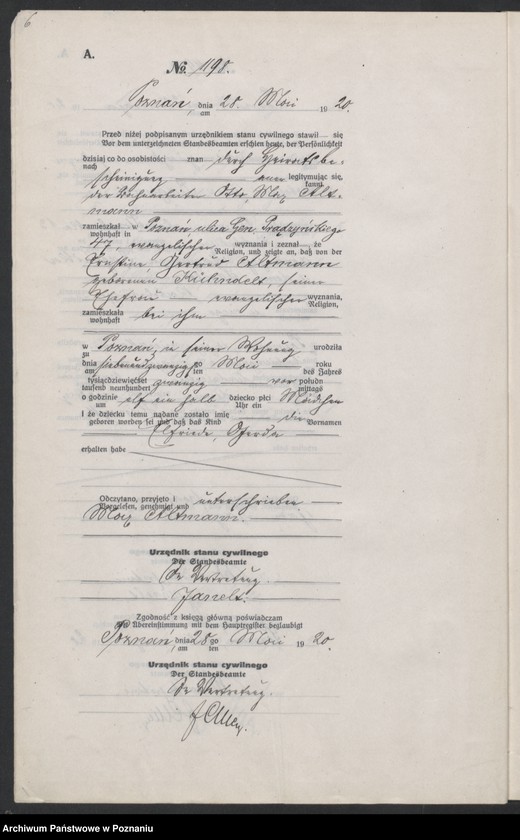 6
A.
No. 1198.
Poznań, dnia 28. Mai 1920.
am
Przed niżej podpisanym urzędnikiem stanu cywilnego stawił się
Vor dem unterzeichneten Standesbeamten erschien heute, der Persönlichkeit
dzisiaj co do osobistości znan durch Heiratsbe-
nach
scheinigung aner legitymując się,
kannt,
der Otto, Max Alt-
mann
zamieszkał w Poznań, ulica Gen. Prądzyńskiego
wohnhaft in
47, evangelischer wyznania i zeznał że
Religion, und zeigte an, daß von der
Ernstine Gertrud Altmann
geborenen, seiner
Ehefrau evangelischer wyznania,
Religion,
zamieszkała bei ihm
wohnhaft
w Poznań, in seiner Wohnung urodziła
zu
dnia siebenundzwanzig go Mai roku
am ten des Jahres
tysiącdziewięćset zwanzig vor połudn
tausend neunhundert mittags
o godzinie elf ein halb dziecko płci Mädchen
um Uhr ein
i że dziecku temu nadane zostało imię die
geboren worden sei und daß das Kind Vornamen
Elfriede, Gerda
erhalten habe
Odczytano, przyjęto i unterschrieben
Vorgelesen, genehmigt und
Max Altmann.
Urzędnik stanu cywilnego
Der Standesbeamte
In Vertretung.
Janelt.
Zgodność z księgą główną poświadczam
Die Übereinstimmung mit dem Hauptregister beglaubigt
Poznań, dnia 28 go Mai 1920.
am ten
Urzędnik stanu cywilnego
Der Standesbeamte
In Vertretung.
Archiwum Państwowe w Poznaniu